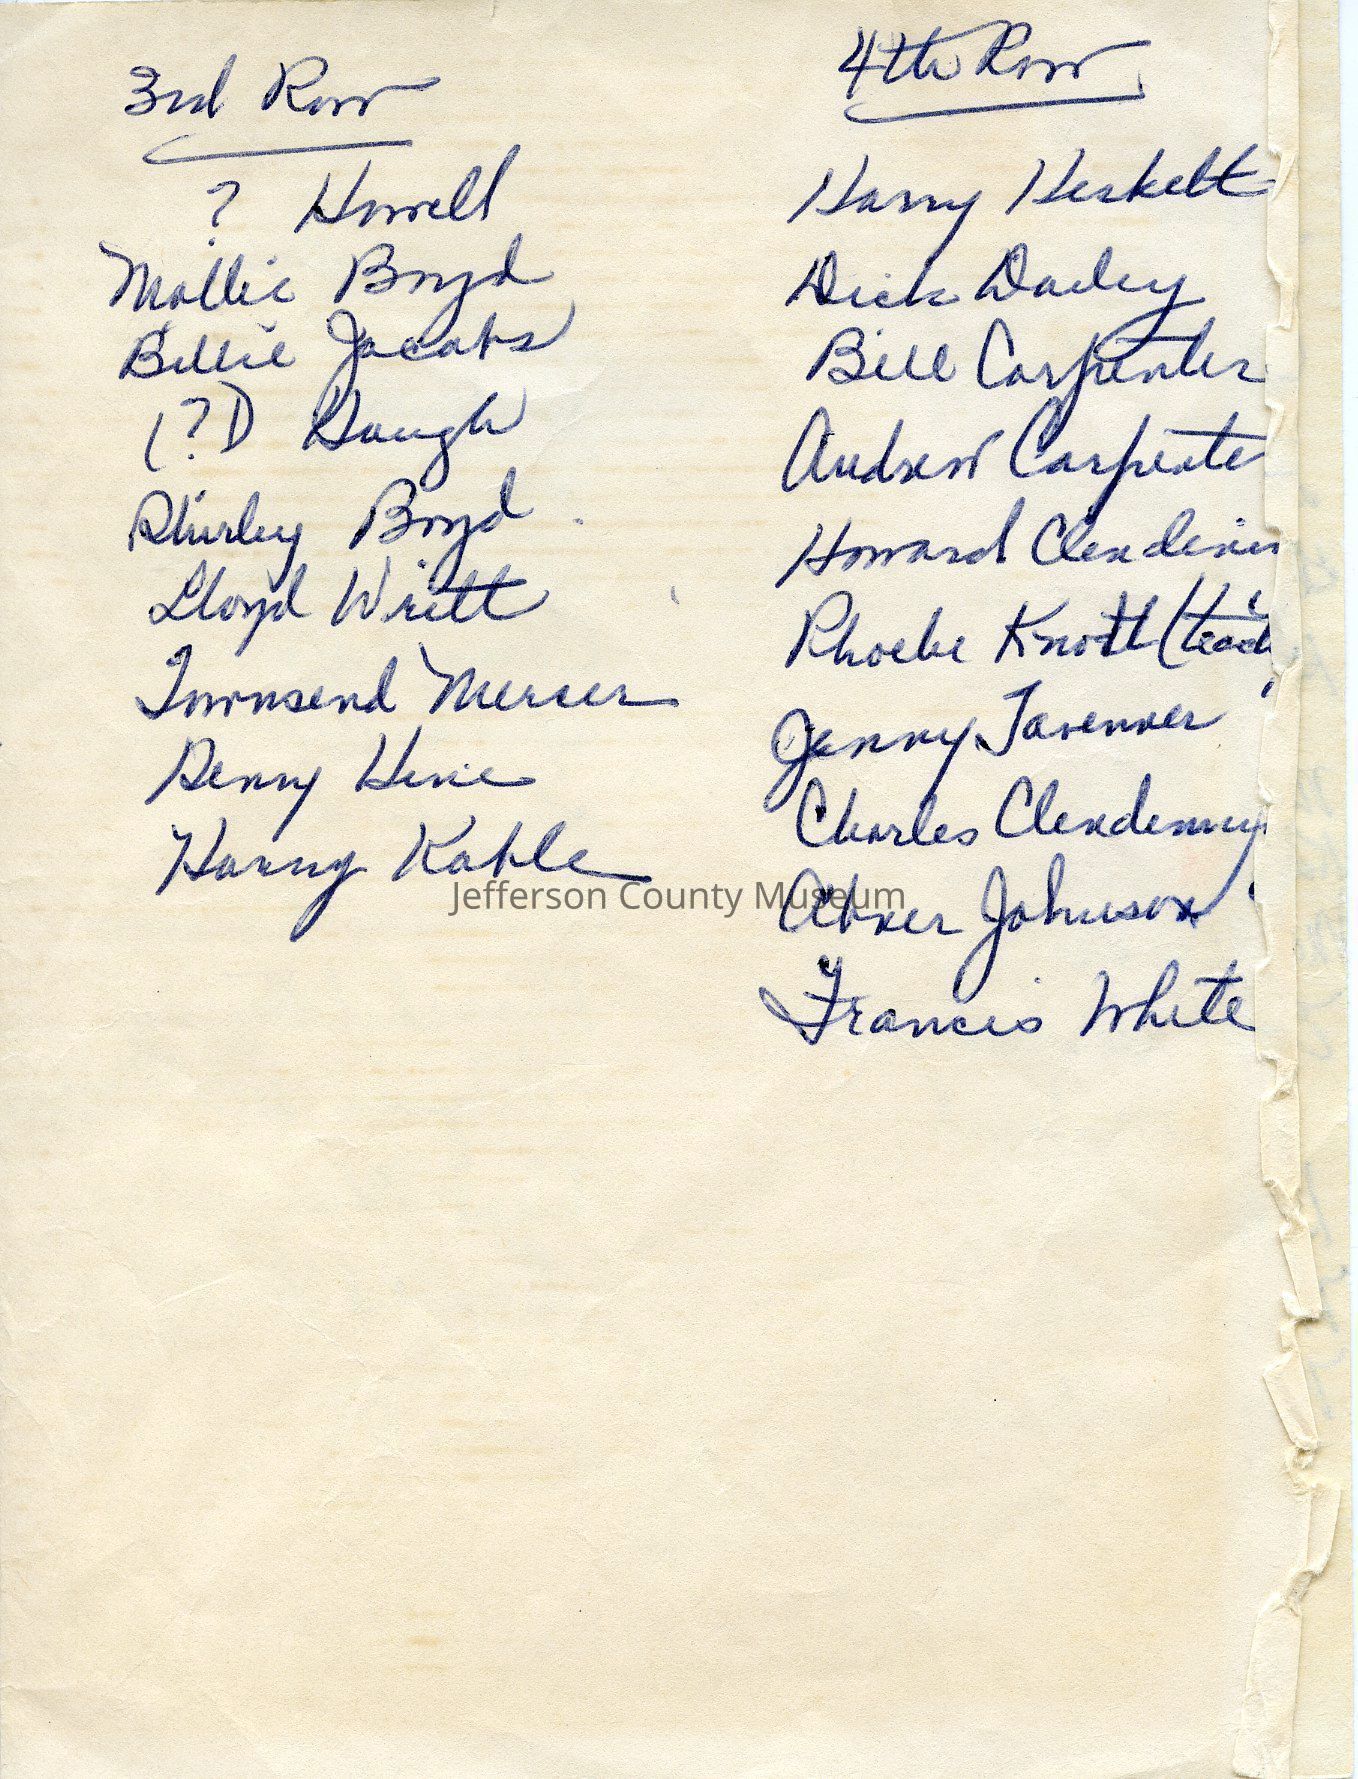 3rd Row
? Howell
Mollie Boyd
Billie Jacobs
(?) Hough
Shirley Boyd
Lloyd Writt
Townsend Mercer
Henry Hine
Harry Kable
4th Row
Harry Heskett
Dick Dailey
Bill Carpenter
Andrew Carpente
Howard Clendenin
Phoebe Knott (teach
Jenny Tavenner
Charles Clendenny
Abner Johnson
Francis White
Jefferson County Museum